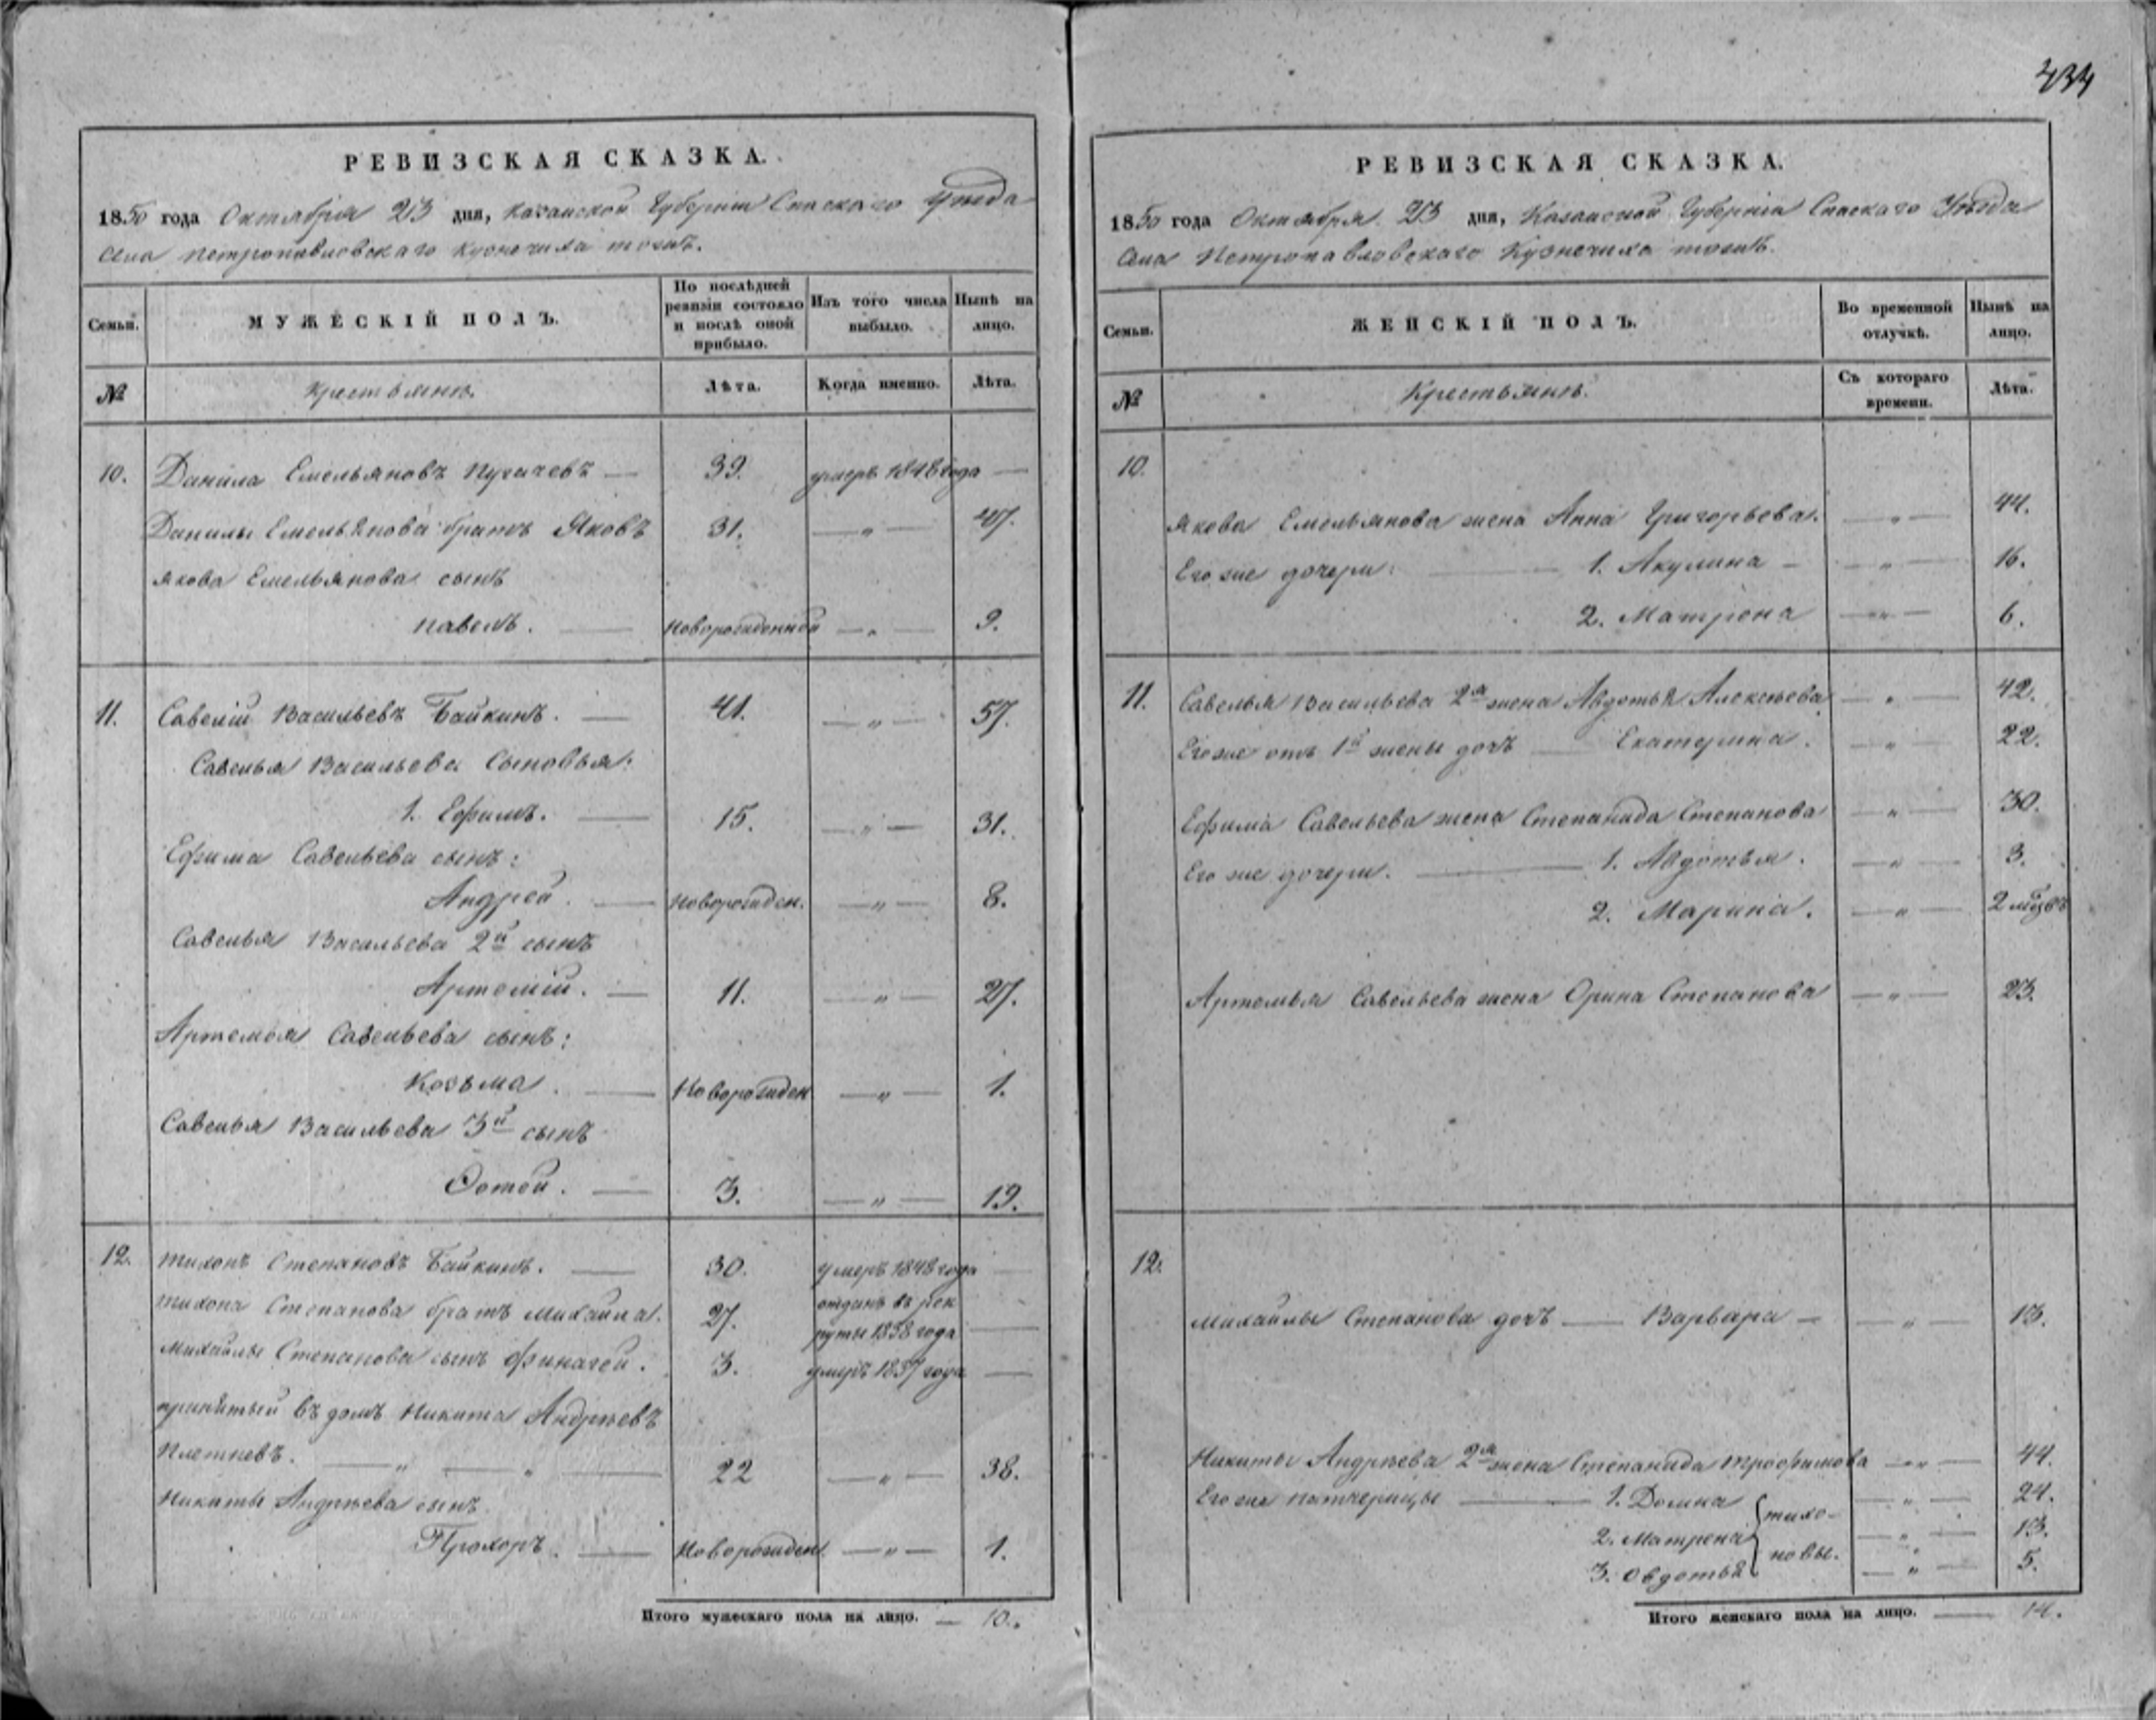 434
РЕВИЗСКАЯ СКАЗКА.
1850 года Октября 23 дня, Казанской Губернии Спаскаго Уѣзда
Села Петропавловскаго Кузнечиха тожъ.
Семьи.
МУЖЕСКІЙ ПОЛЪ.
По послѣдней ревизіи состояло и послѣ оной прибыло.
Изъ того числа выбыло.
Нынѣ на лицо.
№
Крестьянъ.
Лѣта.
Когда именно.
Лѣта.
10. Данила Емельяновъ Пугачевъ — 39. умеръ 1848 года —
Данилы Емельянова братъ Яковъ 31. — „ — 47.
Якова Емельянова сынъ
Павелъ. — Новорожденной — „ — 9.
11. Савелій Васильевъ Байкинъ. — 41. — „ — 57.
Савелья Васильева Сыновья:
1. Ефимъ. — 15. — „ — 31.
Ефима Савельева сынъ:
Андрей. — Новорожден. — „ — 8.
Савелья Васильева 2й сынъ
Артемій. — 11. — „ — 27.
Артемья Савельева сынъ:
Козьма. — Новорожден — „ — 1.
Савелья Васильева 3й сынъ
Фотей. — 3. — „ — 19.
12. Тихонъ Степановъ Байкинъ. — 30. умеръ 1848 года —
Тихона Степанова братъ Михайла. 27. отданъ въ рек
руты 1838 года —
Михайлы Степанова сынъ Финагей. 3. умеръ 1837 года —
принятый въ домъ Никита Андрѣевъ
Плетневъ. — „ — „ — 22 — „ — 38.
Никиты Андрѣева сынъ
Прохоръ. — Новорожден — „ — 1.
Итого мужескаго пола на лицо. — 10.
РЕВИЗСКАЯ СКАЗКА.
1850 года Октября 23 дня, Казанской Губерніи Спаскаго Уѣзда
Села Петропавловскаго Кузнечиха тожъ.
Семьи.
ЖЕНСКІЙ ПОЛЪ.
Во временной отлучкѣ.
Нынѣ на лицо.
№
Крестьянъ.
Съ котораго времени.
Лѣта.
10.
Якова Емельянова жена Анна Григорьева. — „ — 44.
Его же дочери: — 1. Акулина — — „ — 16.
2. Матрена — „ — 6.
11. Савелья Васильева 2я жена Авдотья Алексѣева — „ — 42.
Его же отъ 1й жены дочь — Екатерина. — „ — 22.
Ефима Савельева жена Степанида Степанова — „ — 30.
Его же дочери. — 1. Авдотья. — „ — 3.
2. Марина. — „ — 2 мѣсцъ
Артемья Савельева жена Орина Степанова — „ — 23.
12.
Михайлы Степанова дочь — Варвара — — „ — 13.
Никиты Андрѣева 2я жена Степанида Трофимова — „ — 44.
Его же патчерицы — 1. Домна } Тихо- — „ — 24.
2. Матрена } новы. — „ — 13.
3. Овдотья — „ — 5.
Итого женскаго пола на лицо. — 14.